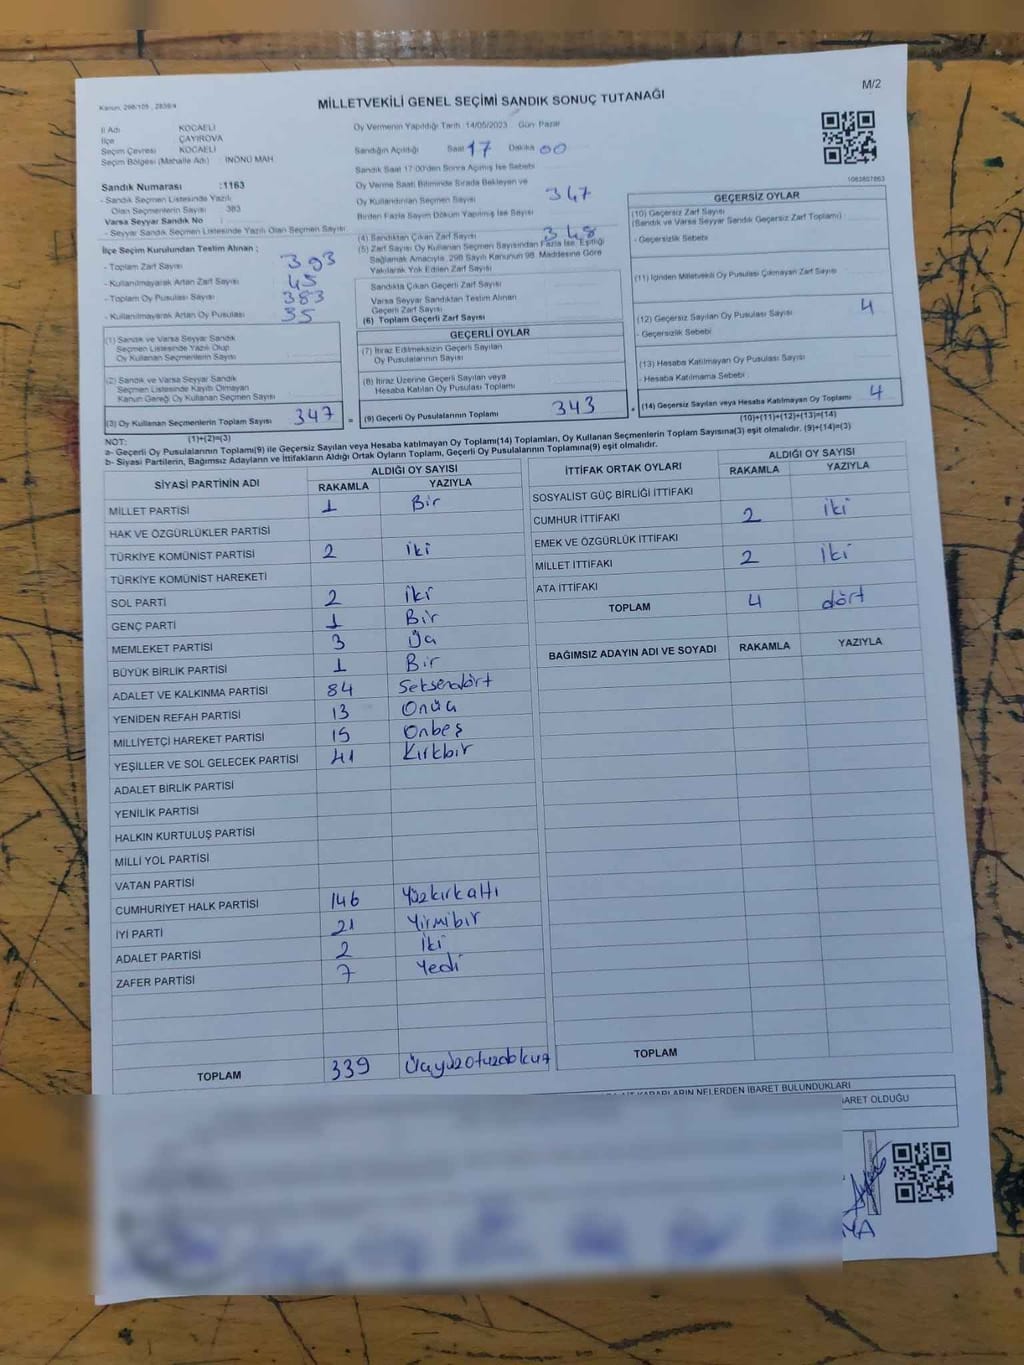 Kanun, 298/105 , 2839/4
MİLLETVEKİLİ GENEL SEÇİMİ SANDIK SONUÇ TUTANAĞI
M/2
İl Adı KOCAELİ
İlçe ÇAYIROVA
Seçim Çevresi KOCAELİ
Seçim Bölgesi (Mahalle Adı) : İNÖNÜ MAH.
Oy Vermenin Yapıldığı Tarih :14/05/2023 Gün: Pazar
Sandığın Açıldığı Saat 17 Dakika 00
Sandık Saat 17:00'den Sonra Açılmış İse Sebebi
Sandık Numarası :1163
- Sandık Seçmen Listesinde Yazılı
Olan Seçmenlerin Sayısı 383
Varsa Seyyar Sandık No :
- Seyyar Sandık Seçmen Listesinde Yazılı Olan Seçmen Sayısı
Oy Verme Saati Bitiminde Sırada Bekleyen ve
Oy Kullandırılan Seçmen Sayısı 347
Birden Fazla Sayım Döküm Yapılmış İse Sayısı
İlçe Seçim Kurulundan Teslim Alınan ;
- Toplam Zarf Sayısı 393
- Kullanılmayarak Artan Zarf Sayısı 45
- Toplam Oy Pusulası Sayısı 383
- Kullanılmayarak Artan Oy Pusulası 35
(1) Sandık ve Varsa Seyyar Sandık
Seçmen Listesinde Yazılı Olup
Oy Kullanan Seçmenlerin Sayısı
(2) Sandık ve Varsa Seyyar Sandık
Seçmen Listesinde Kayıtlı Olmayan
Kanun Gereği Oy Kullanan Seçmen Sayısı
(3) Oy Kullanan Seçmenlerin Toplam Sayısı 347
(1)+(2)=(3)
(4) Sandıktan Çıkan Zarf Sayısı 348
(5) Zarf Sayısı Oy Kullanan Seçmen Sayısından Fazla İse, Eşitliği
Sağlamak Amacıyla, 298 Sayılı Kanunun 98. Maddesine Göre
Yakılarak Yok Edilen Zarf Sayısı
Sandıkta Çıkan Geçerli Zarf Sayısı
Varsa Seyyar Sandıktan Teslim Alınan
Geçerli Zarf Sayısı
(6) Toplam Geçerli Zarf Sayısı
GEÇERLİ OYLAR
(7) İtiraz Edilmeksizin Geçerli Sayılan
Oy Pusulalarının Sayısı
(8) İtiraz Üzerine Geçerli Sayılan veya
Hesaba Katılan Oy Pusulası Toplamı
= (9) Geçerli Oy Pusulalarının Toplamı 343
1083807863
GEÇERSİZ OYLAR
(10) Geçersiz Zarf Sayısı
(Sandık ve Varsa Seyyar Sandık Geçersiz Zarf Toplamı)
- Geçersizlik Sebebi
(11) İçinden Milletvekili Oy Pusulası Çıkmayan Zarf Sayısı
(12) Geçersiz Sayılan Oy Pusulası Sayısı 4
- Geçersizlik Sebebi
(13) Hesaba Katılmayan Oy Pusulası Sayısı
- Hesaba Katılmama Sebebi
+ (14) Geçersiz Sayılan veya Hesaba Katılmayan Oy Toplamı 4
(10)+(11)+(12)+(13)=(14)
NOT:
a- Geçerli Oy Pusulalarının Toplamı(9) ile Geçersiz Sayılan veya Hesaba katılmayan Oy Toplamı(14) Toplamları, Oy Kullanan Seçmenlerin Toplam Sayısına(3) eşit olmalıdır. (9)+(14)=(3)
b- Siyasi Partilerin, Bağımsız Adayların ve İttifakların Aldığı Ortak Oyların Toplamı, Geçerli Oy Pusulalarının Toplamına(9) eşit olmalıdır.
SİYASİ PARTİNİN ADI ALDIĞI OY SAYISI
RAKAMLA YAZIYLA
MİLLET PARTİSİ 1 Bir
HAK VE ÖZGÜRLÜKLER PARTİSİ
TÜRKİYE KOMÜNİST PARTİSİ 2 iki
TÜRKİYE KOMÜNİST HAREKETİ
SOL PARTİ 2 iki
GENÇ PARTİ 1 Bir
MEMLEKET PARTİSİ 3 Üç
BÜYÜK BİRLİK PARTİSİ 1 Bir
ADALET VE KALKINMA PARTİSİ 84 Seksendört
YENİDEN REFAH PARTİSİ 13 Onüç
MİLLİYETÇİ HAREKET PARTİSİ 15 Onbeş
YEŞİLLER VE SOL GELECEK PARTİSİ 41 Kırkbir
ADALET BİRLİK PARTİSİ
YENİLİK PARTİSİ
HALKIN KURTULUŞ PARTİSİ
MİLLİ YOL PARTİSİ
VATAN PARTİSİ
CUMHURİYET HALK PARTİSİ 146 Yüzkırkaltı
İYİ PARTİ 21 Yirmibir
ADALET PARTİSİ 2 İki
ZAFER PARTİSİ 7 Yedi
TOPLAM 339 Üçyüzotuzdokuz
İTTİFAK ORTAK OYLARI ALDIĞI OY SAYISI
RAKAMLA YAZIYLA
SOSYALİST GÜÇ BİRLİĞİ İTTİFAKI
CUMHUR İTTİFAKI 2 iki
EMEK VE ÖZGÜRLÜK İTTİFAKI
MİLLET İTTİFAKI 2 iki
ATA İTTİFAKI
TOPLAM 4 dört
BAĞIMSIZ ADAYIN ADI VE SOYADI RAKAMLA YAZIYLA
TOPLAM
KARARLARIN NELERDEN İBARET BULUNDUKLARI
İBARET OLDUĞU